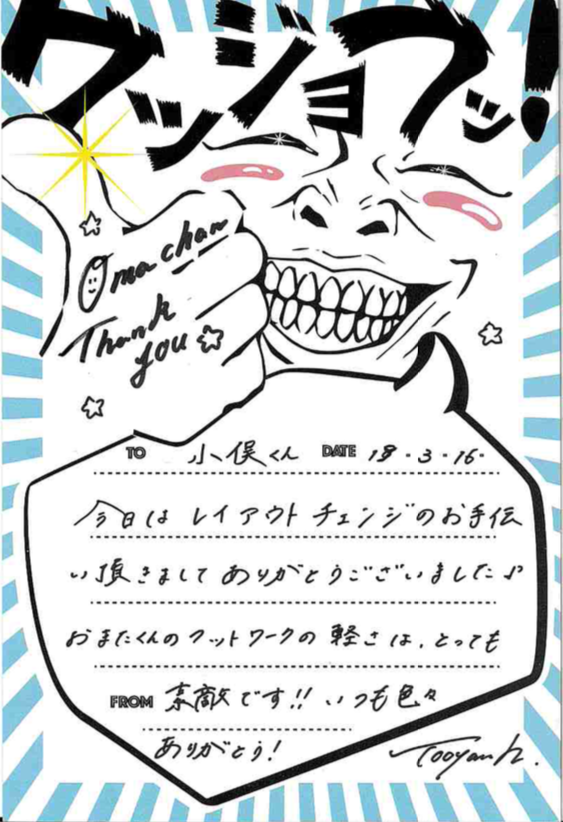 グッジョブッ!
Oma chan
Thank
you
TO 小俣くん DATE 18・3・16・
今日は レイアウト チェンジのお手伝
い頂きまして ありがとうございました♪
おまたくんの フットワークの 軽さ は、とっても
FROM 素敵です!! いつも色々
ありがとう! Tooyan h.